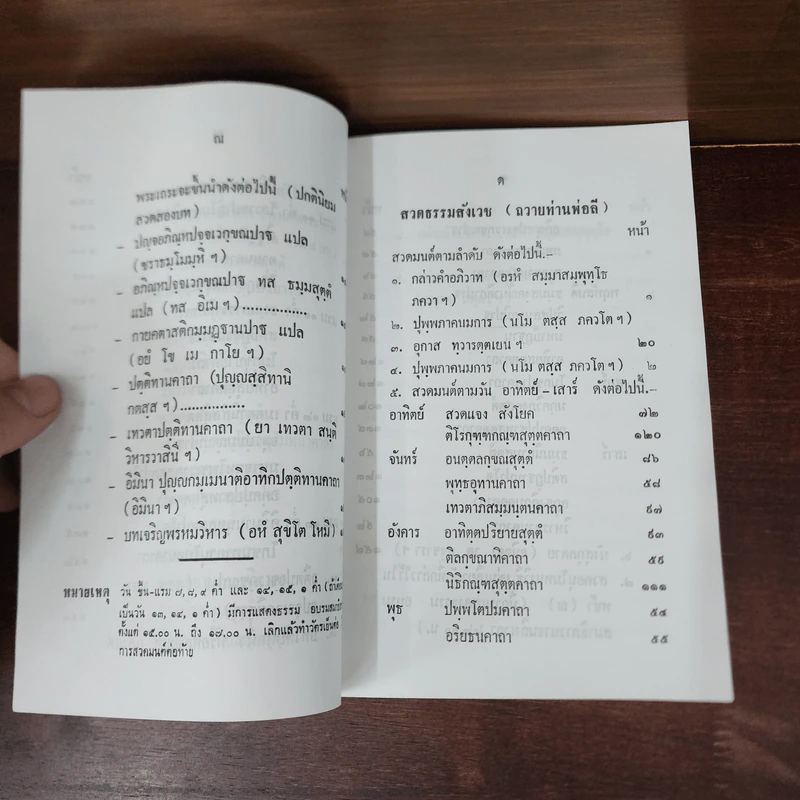 ณ
พระเถระจะขึ้นนำดังต่อไปนี้ (ปกตินิยม
สวดสองบท)
– ปญฺจอภิณฺหปจฺจเวกฺขณปาฐ แปล
(ชราธมฺโมมฺหิ ฯ)
– อภิณฺหปจฺจเวกฺขณปาฐ ทส ธมฺมสุตฺตํ
แปล (ทส อิเม ฯ)................
– กายคตาสติกมฺมฏฺฐานปาฐ แปล
(อยํ โข เม กาโย ฯ)
– ปตฺติทานคาถา (ปุญฺญสฺสิทานิ
กตสฺส ฯ)................
– เทวตาปตฺติทานคาถา (ยา เทวตา สนฺติ
วิหารวาสินี ฯ)
– อิมินา ปุญฺญกมฺเมนาติอาทิกปตฺติทานคาถา
(อิมินา ฯ)
– บทเจริญพรหมวิหาร (อหํ สุขิโต โหมิ)
หมายเหตุ วัน ขึ้น–แรม ๗, ๘, ๙ ค่ำ และ ๑๔, ๑๕, ๑ ค่ำ
เป็นวัน ๑๓, ๑๔, ๑ ค่ำ) มีการแสดงธรรม อบรมสมาธิ
ตั้งแต่ ๑๕.๐๐ น. ถึง ๑๗.๐๐ น. เลิกแล้วทำวัตรเย็น
การสวดมนต์ต่อท้าย
ด
สวดธรรมสังเวช (ถวายท่านพ่อลี)
หน้า
สวดมนต์ตามลำดับ ดังต่อไปนี้.–
๑. กล่าวคำอภิวาท (อรหํ สมฺมาสมฺพุทฺโธ
ภควา ฯ) ๑
๒. ปุพฺพภาคนมการ (นโม ตสฺส ภควโต ฯ) ๑
๓. อุกาส ทฺวารตฺตเยน ฯ ๒๐
๔. ปุพฺพภาคนมการ (นโม ตสฺส ภควโต ฯ) ๒
๕. สวดมนต์ตามวัน อาทิตย์–เสาร์ ดังต่อไปนี้.–
อาทิตย์ สวดแจง สังโยค ๗๒
ติโรกุฑฺฑกณฺฑสุตฺตคาถา ๑๒๐
จันทร์ อนตฺตลกฺขณสุตฺตํ ๘๖
พุทฺธอุทานคาถา ๕๘
เทวตาภิสมฺมนฺตนคาถา ๙๗
อังคาร อาทิตฺตปริยายสุตฺตํ ๙๓
ติลกฺขณาทิคาถา ๕๙
นิธิกณฺฑสุตฺตคาถา ๑๑๑
พุธ ปพฺพโตปมคาถา ๕๔
อริยธนคาถา ๕๕